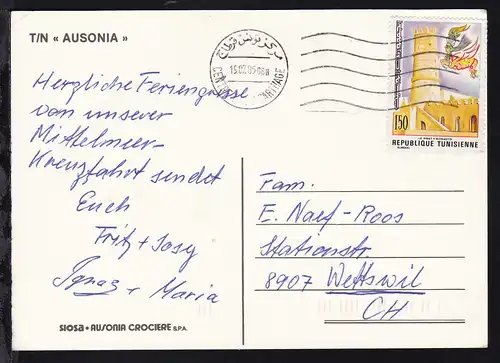 T/N « AUSONIA »
Herzliche Feriengrüsse
von unserer
Mittelmeer-
Kreuzfahrt sendet
Euch
Fritz + Josy
Ignaz + Maria
SIOSA • AUSONIA CROCIERE S.P.A.
مركز تونس قرطاج
CARTHAGE
150
REPUBLIQUE TUNISIENNE
Fam.
E. Naef-Roos
Stationstr.
8907 Wettswil
CH